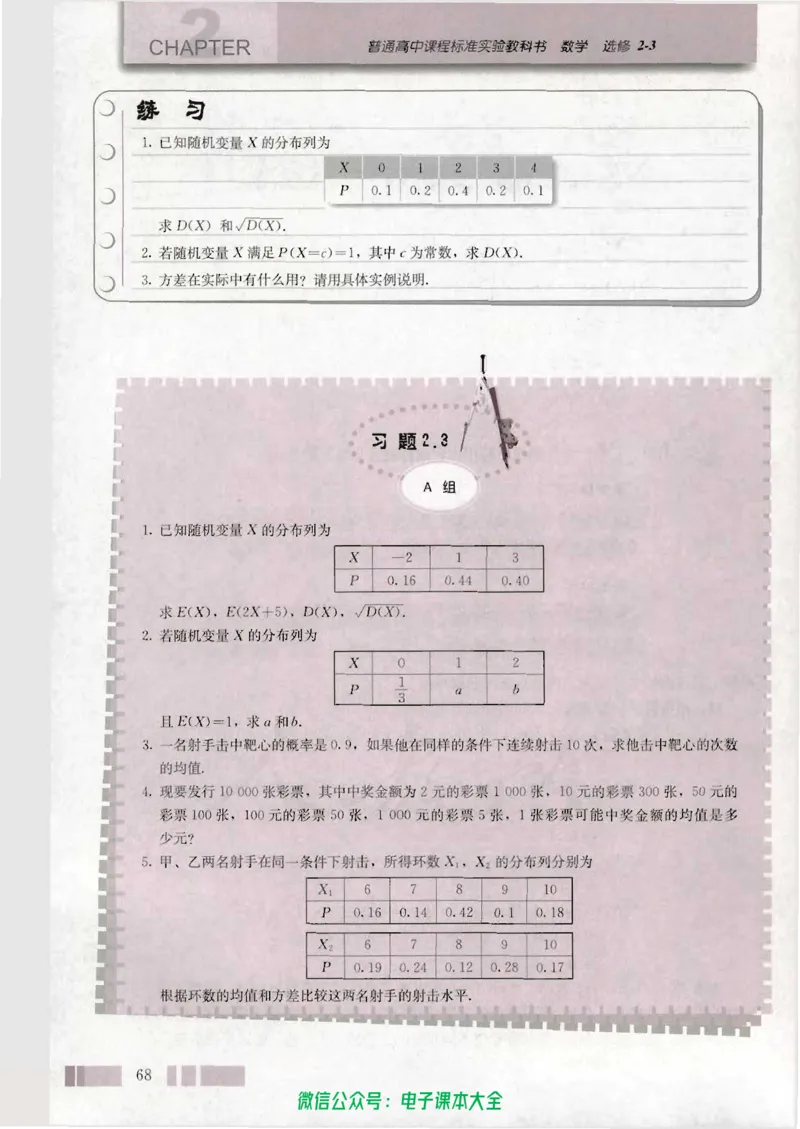 2
CHAPTER
普通高中课程标准实验教科书 数学 选修 2-3
练 习
1. 已知随机变量 X 的分布列为
X 0 1 2 3 4
P 0.1 0.2 0.4 0.2 0.1
求 D(X) 和√D(X).
2. 若随机变量 X 满足 P(X=c)=1，其中 c 为常数，求 D(X).
3. 方差在实际中有什么用？请用具体实例说明.
习 题 2.3
A 组
1. 已知随机变量 X 的分布列为
X -2 1 3
P 0.16 0.44 0.40
求 E(X)，E(2X+5)，D(X)，√D(X).
2. 若随机变量 X 的分布列为
X 0 1 2
P 1/3 a b
且 E(X)=1，求 a 和 b.
3. 一名射手击中靶心的概率是 0.9，如果他在同样的条件下连续射击 10 次，求他击中靶心的次数
的均值.
4. 现要发行 10 000 张彩票，其中中奖金额为 2 元的彩票 1 000 张，10 元的彩票 300 张，50 元的
彩票 100 张，100 元的彩票 50 张，1 000 元的彩票 5 张，1 张彩票可能中奖金额的均值是多
少元？
5. 甲、乙两名射手在同一条件下射击，所得环数 X₁，X₂ 的分布列分别为
X₁ 6 7 8 9 10
P 0.16 0.14 0.42 0.1 0.18
X₂ 6 7 8 9 10
P 0.19 0.24 0.12 0.28 0.17
根据环数的均值和方差比较这两名射手的射击水平.
68
微信公众号：电子课本大全